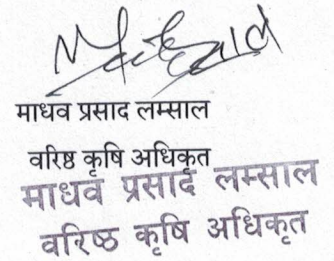 माधव प्रसाद लम्साल
वरिष्ठ कृषि अधिकृत
माधव प्रसाद लम्साल
वरिष्ठ कृषि अधिकृत